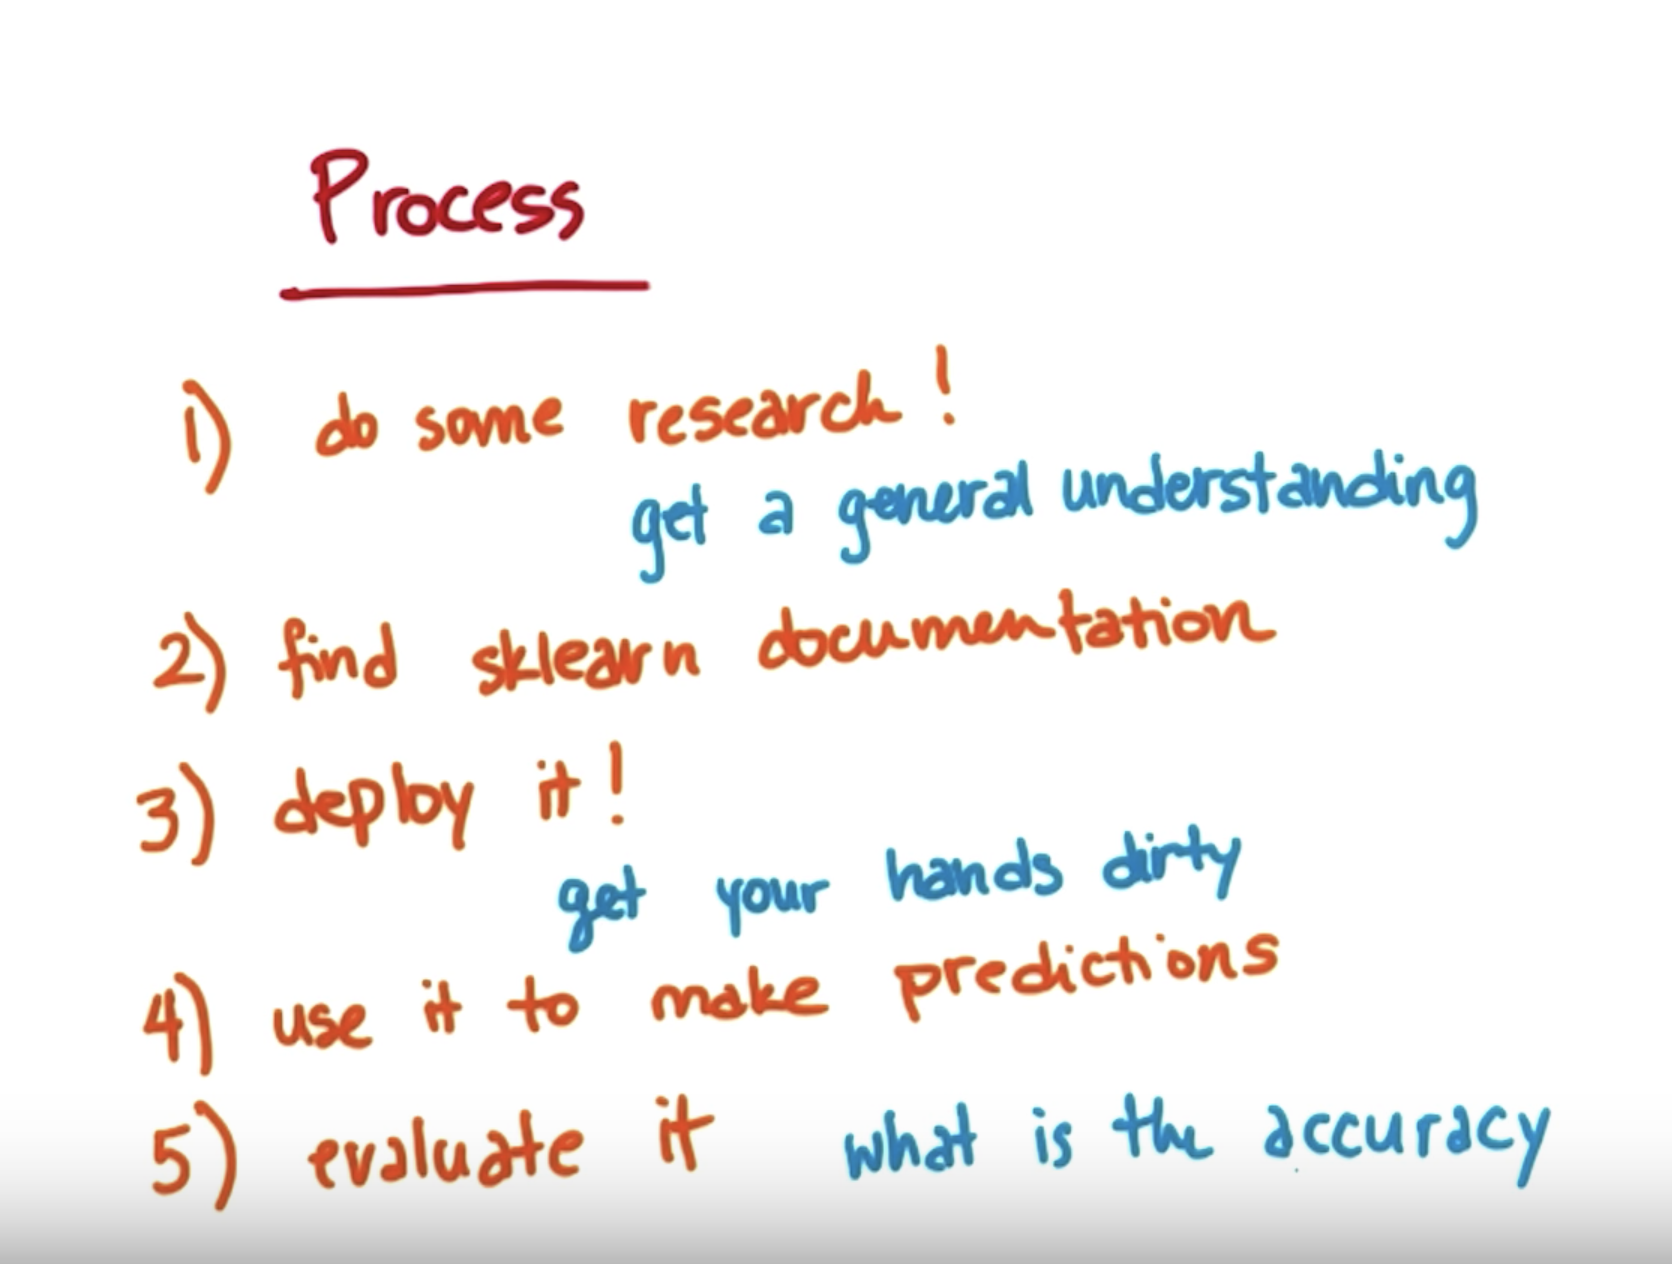 Process
1) do some research!
get a general understanding
2) find sklearn documentation
3) deploy it!
get your hands dirty
4) use it to make predictions
5) evaluate it what is the accuracy